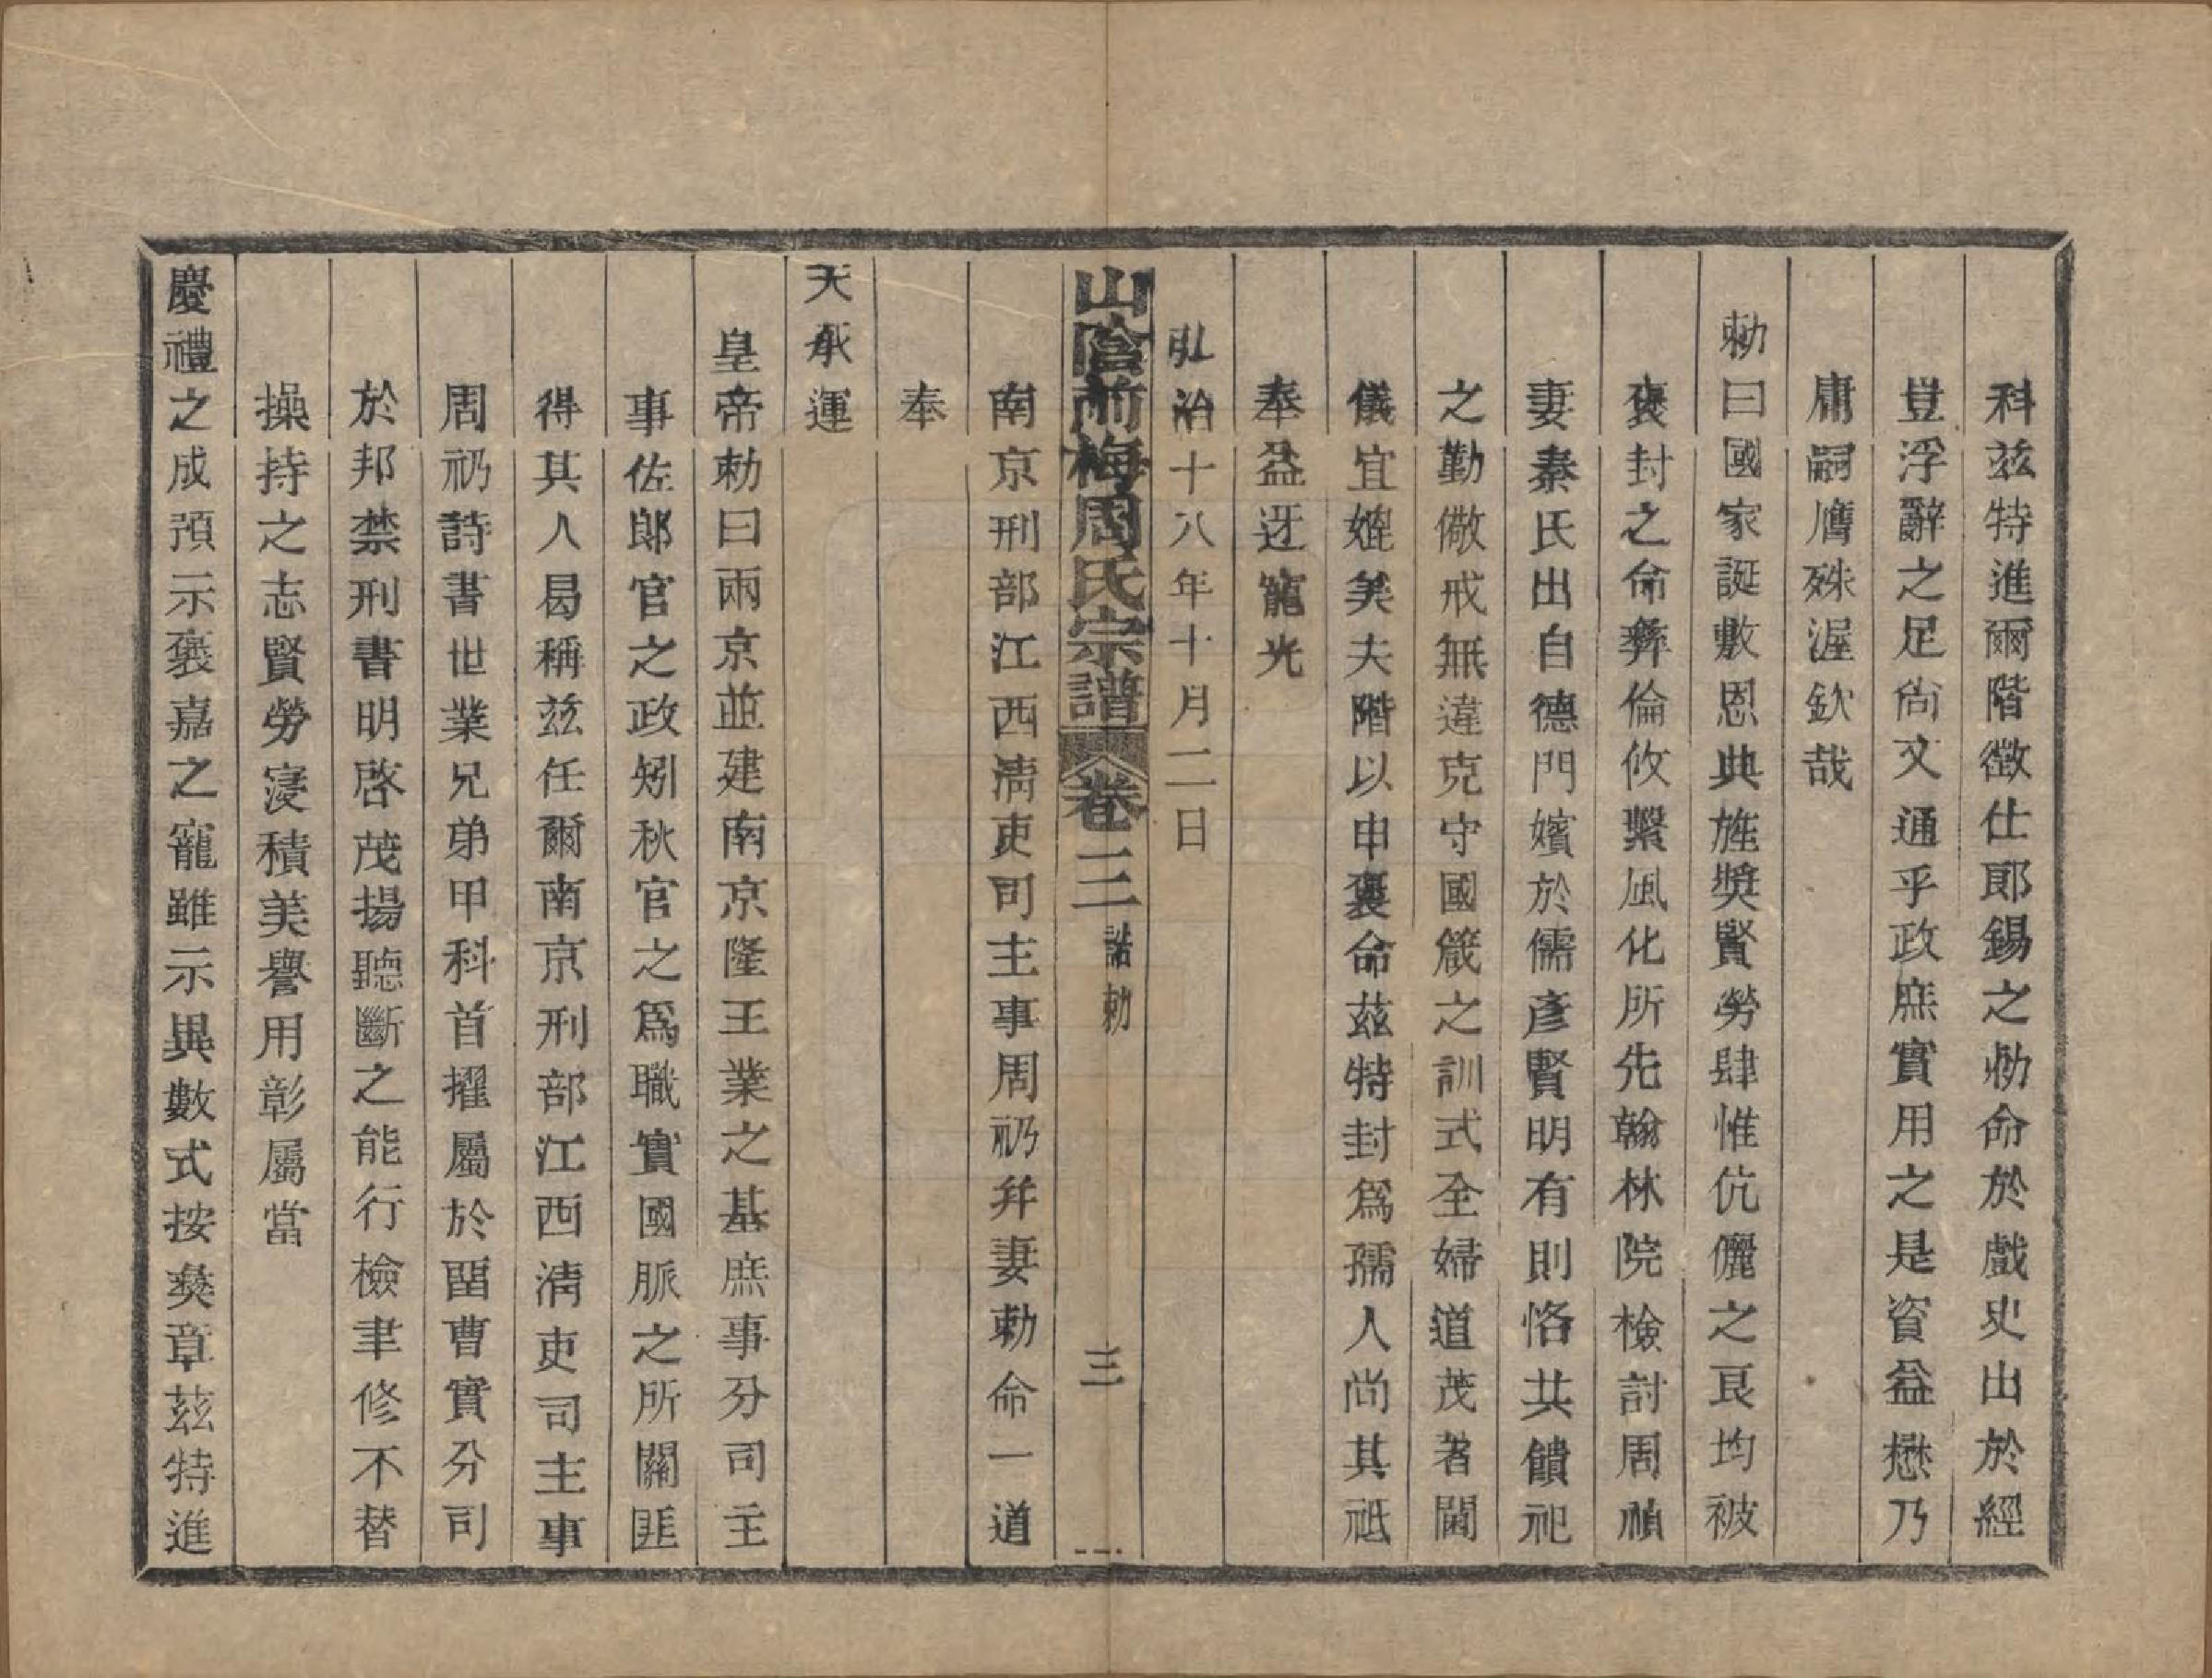 科兹特進爾階徵仕郎錫之勅命於戲史出於經
豈浮辭之足尚文通乎政庶實用之是資益懋乃
庸嗣膺殊渥欽哉
勅曰國家誕敷恩典旌奬賢勞肆惟伉儷之良均被
褒封之命彝倫攸繫風化所先翰林院檢討周禎
妻秦氏出自德門嬪於儒彥賢明有則恪共饋祀
之勤儆戒無違克守國箴之訓式全婦道茂著閫
儀宜媲美夫階以申褒命茲特封爲孺人尚其祗
奉益迓寵光
弘治十八年十月二日
山陰前梅周氏宗譜 卷三 誥勅 三
南京刑部江西淸吏司主事周礽并妻勅命一道
奉
天承運
皇帝勅曰兩京並建南京隆王業之基庶事分司主
事佐郎官之政矧秋官之爲職實國脈之所關匪
得其人曷稱兹任爾南京刑部江西淸吏司主事
周礽詩書世業兄弟甲科首擢屬於留曹實分司
於邦禁刑書明啓茂揚聽斷之能行檢聿修不替
操持之志賢勞寖積美譽用彰屬當
慶禮之成預示褒嘉之寵雖示異數式按彝章茲特進